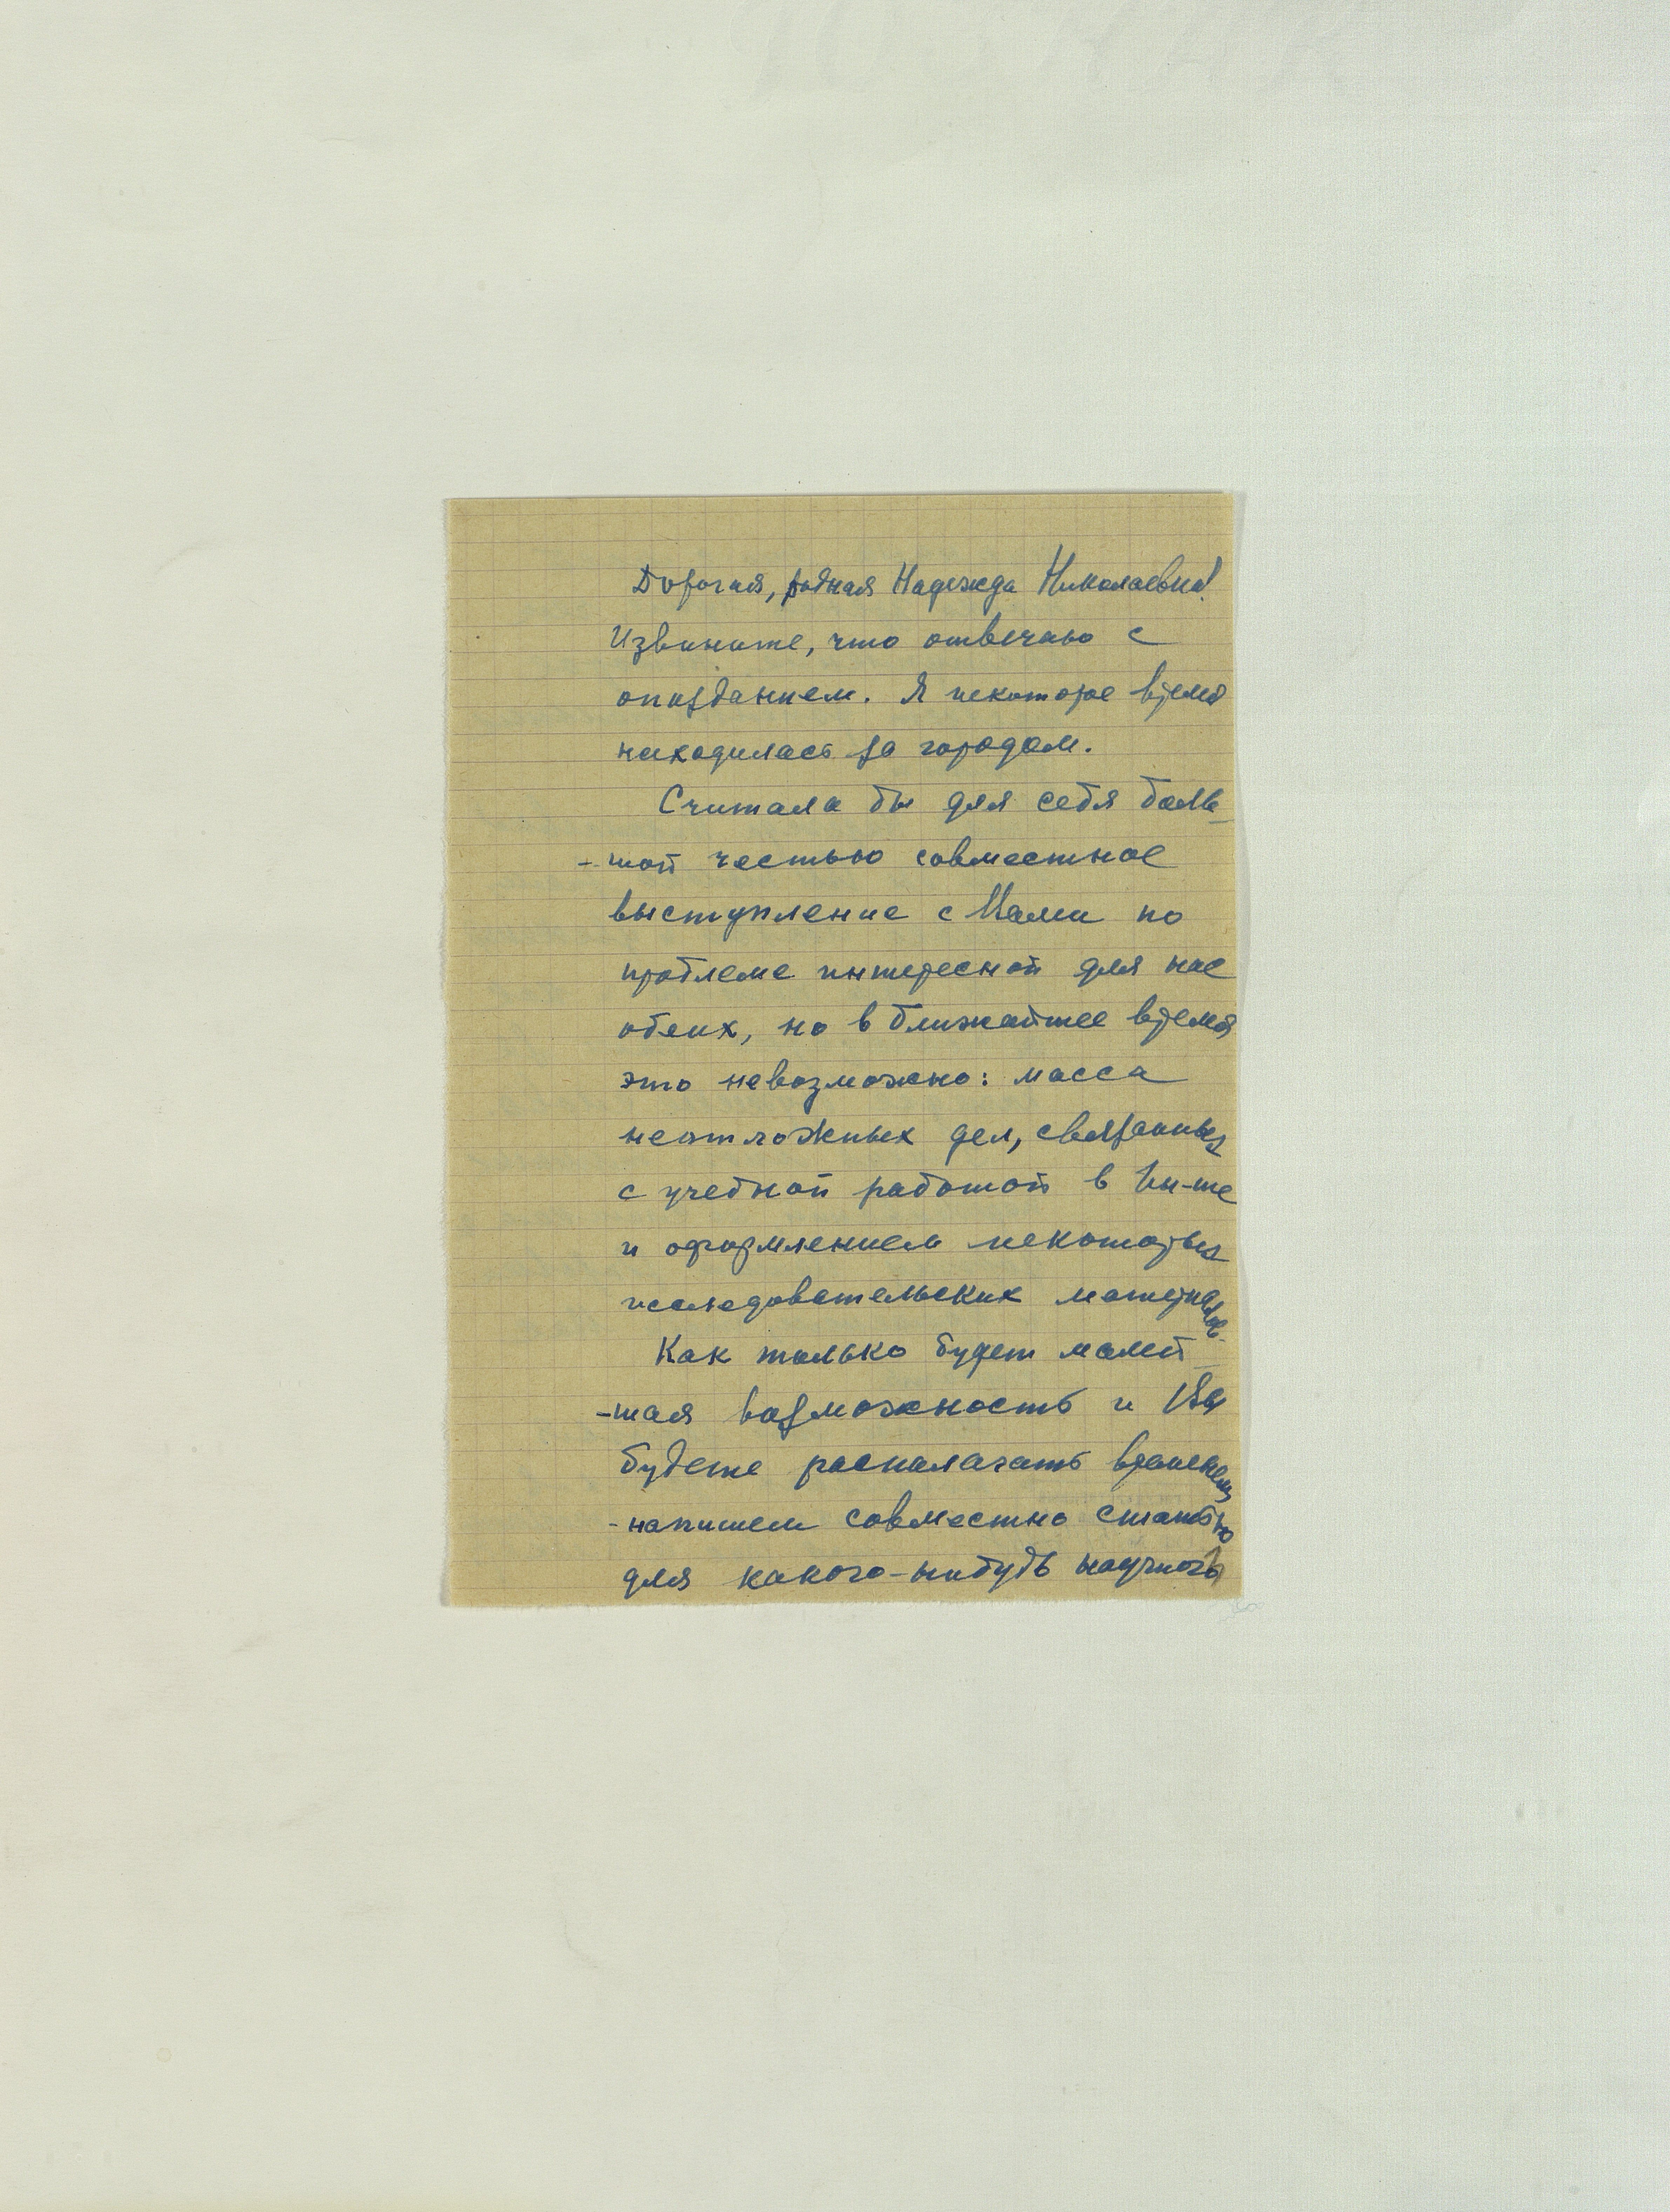 Дорогая, родная Надежда Николаевна!
Извините, что отвечаю с
опозданием. Я некоторое время
находилась за городом.
Считала бы для себя боль-
-шой честью совместное
выступление с Вами по
проблеме интересной для нас
обеих, но в ближайшее время
это невозможно: масса
неотложных дел, связанных
с учебной работой в Ин-те
и оформлением некоторых
исследовательских материалов.
Как только будет малей-
-шая возможность и Вы
будете располагать временем,
- напишем совместно статью
для какого-нибудь научного